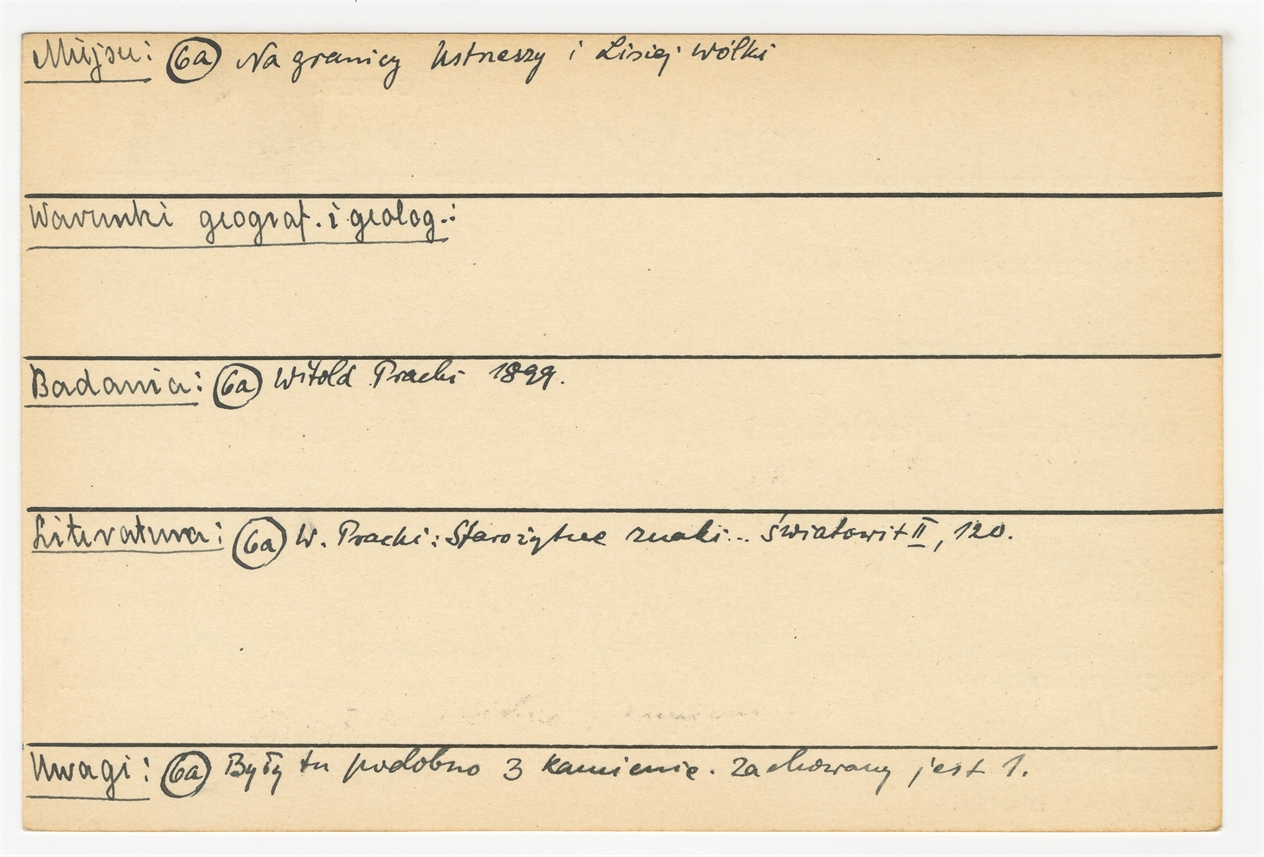 Miejsce: (6a) Na granicy Ustrzeszy i Lisiej Wólki
Warunki geograf. i geolog.:
Badania: (6a) Witold Pracki 1899.
Literatura: (6a) W. Pracki: Starożytne znaki... Światowit II, 120.
Uwagi: (6a) Były tu podobno 3 kamienie. Zachowany jest 1.